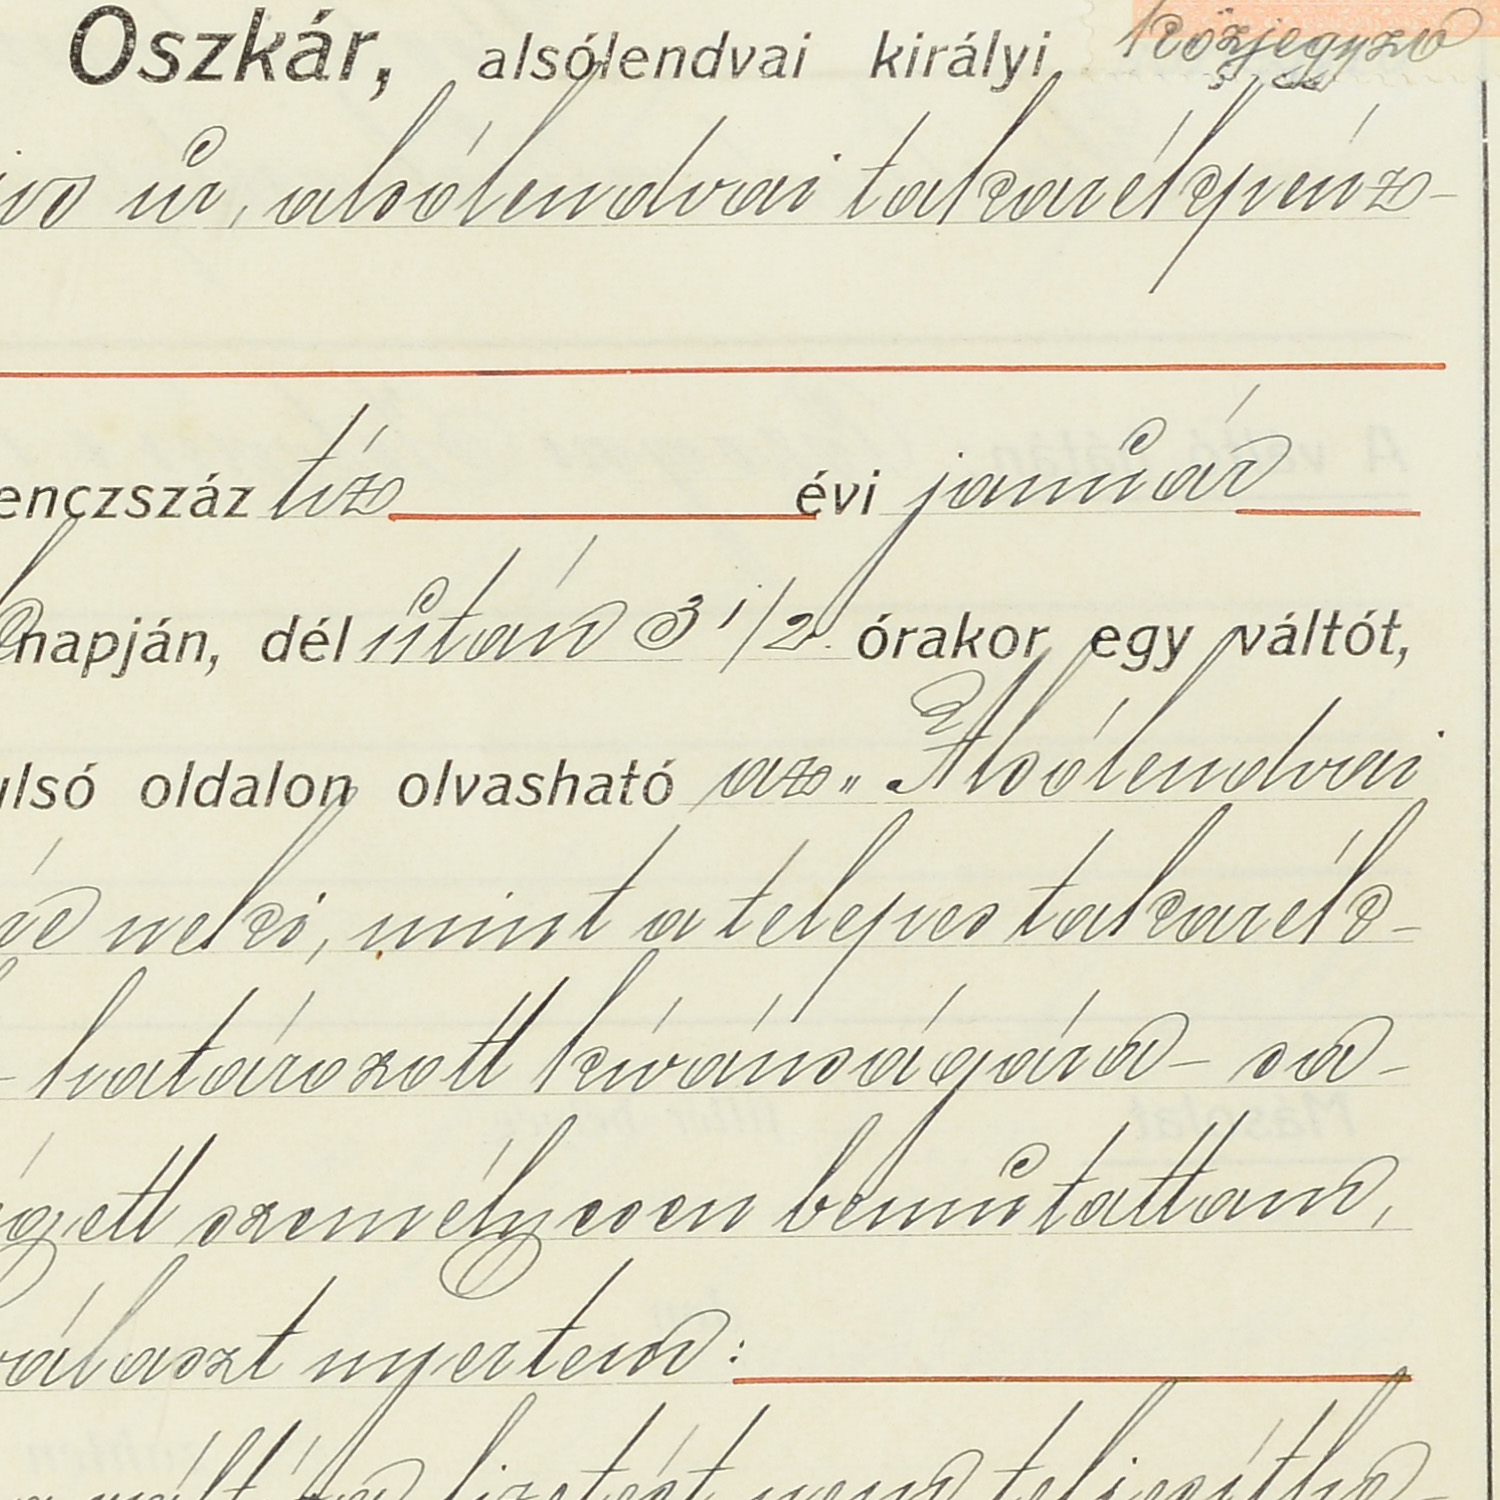 Oszkár, alsólendvai királyi közjegyző
úr, alsólendvai takarékpénz-
enczszáz tíz évi január
napján, dél után 3 1/2 órakor egy váltót,
ulsó oldalon olvasható az „Alsólendvai
neki, mint a telepes takarék-
- határozott kívánságára - sa-
személyesen bemutattam,
választ nyertem:
vált fizetést nem teljesíthe-